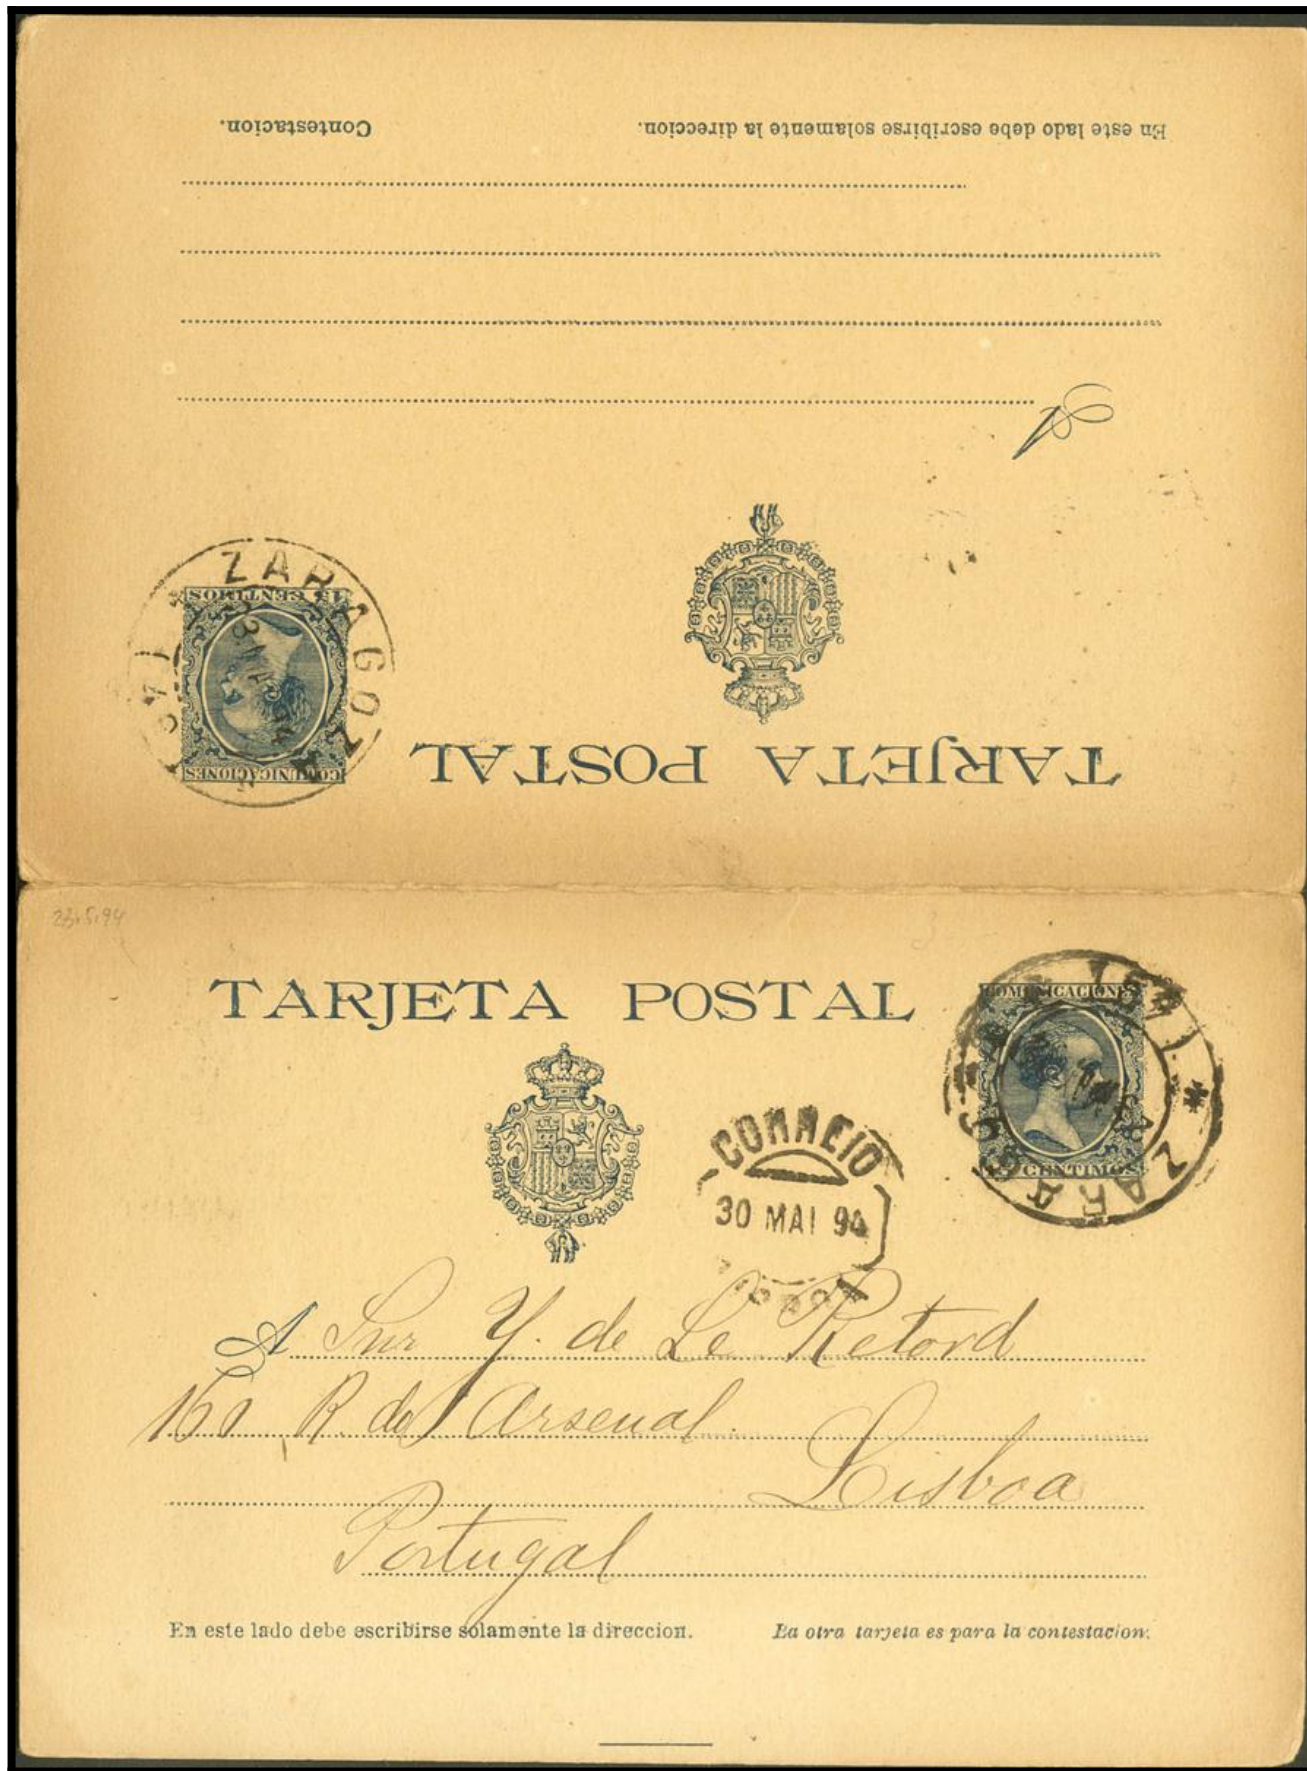 En este lado debe escribirse solamente la direccion.
Contestacion.
TARJETA POSTAL
COMUNICACIONES
15 CENTIMOS
ZARAGOZA
23.5.94
TARJETA POSTAL
COMUNICACIONES
15 CENTIMOS
ZARAGOZA
CORREIO
30 MAI 94
A Snr Y. de Le Retord
160 R. do Arsenal.
Lisboa
Portugal
En este lado debe escribirse solamente la direccion.
La otra tarjeta es para la contestacion.